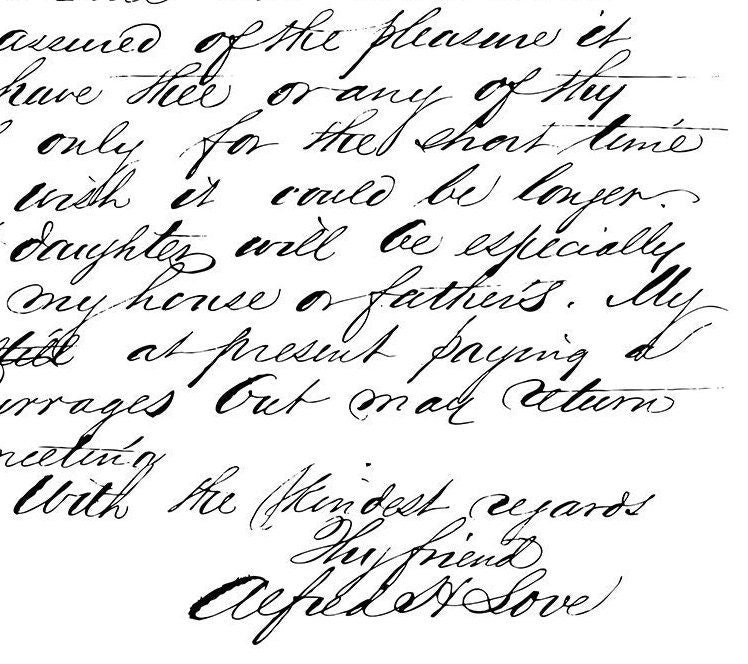 assured of the pleasure it
have thee or any of thy
only for the short time
wish it could be longer.
daughter will be especially
my house or father's. My
still at present paying a
urrages but may return
meeting
With the kindest regards
Thy friend
Alfred H Love